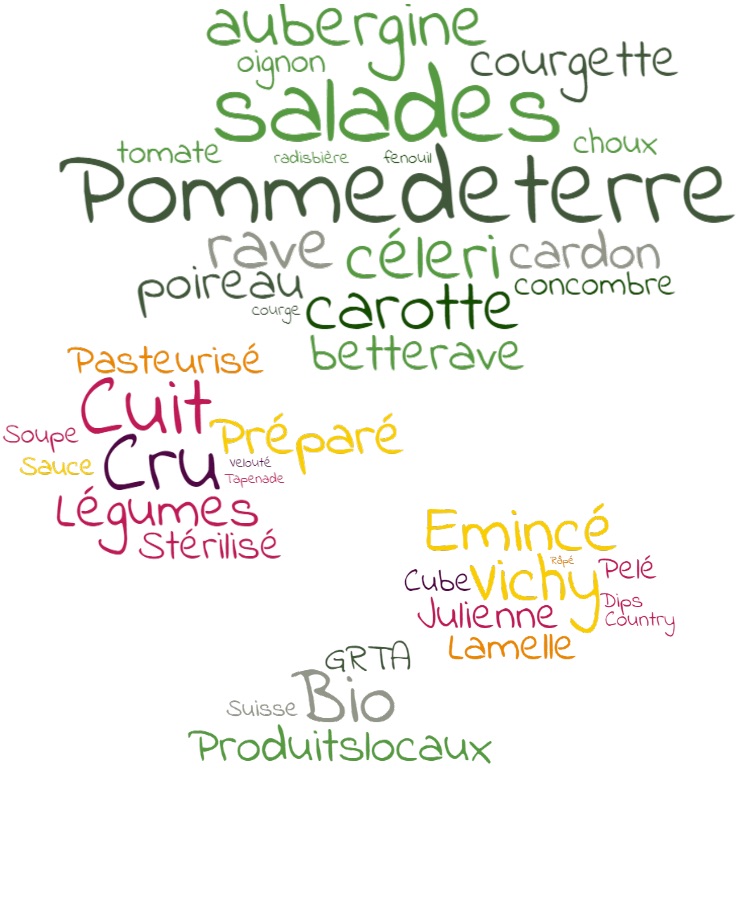 aubergine
oignon courgette
salades
tomate radisbière fenouil choux
Pommedeterre
rave céleri cardon
poireau concombre
courge carotte
betterave
Pasteurisé
Cuit
Soupe Préparé
Sauce Cru Velouté
Tapenade
Légumes
Stérilisé
Emincé
Râpé
Cube Vichy Pelé
Julienne Dips
Country
Lamelle
GRTA
Suisse Bio
Produitslocaux